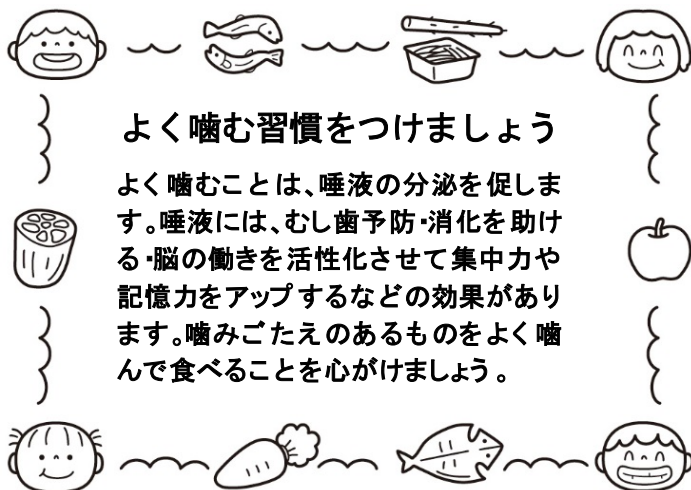 よく噛む習慣をつけましょう
よく噛むことは、唾液の分泌を促しま
す。唾液には、むし歯予防・消化を助け
る・脳の働きを活性化させて集中力や
記憶力をアップするなどの効果があり
ます。噛みごたえのあるものをよく噛
んで食べることを心がけましょう。